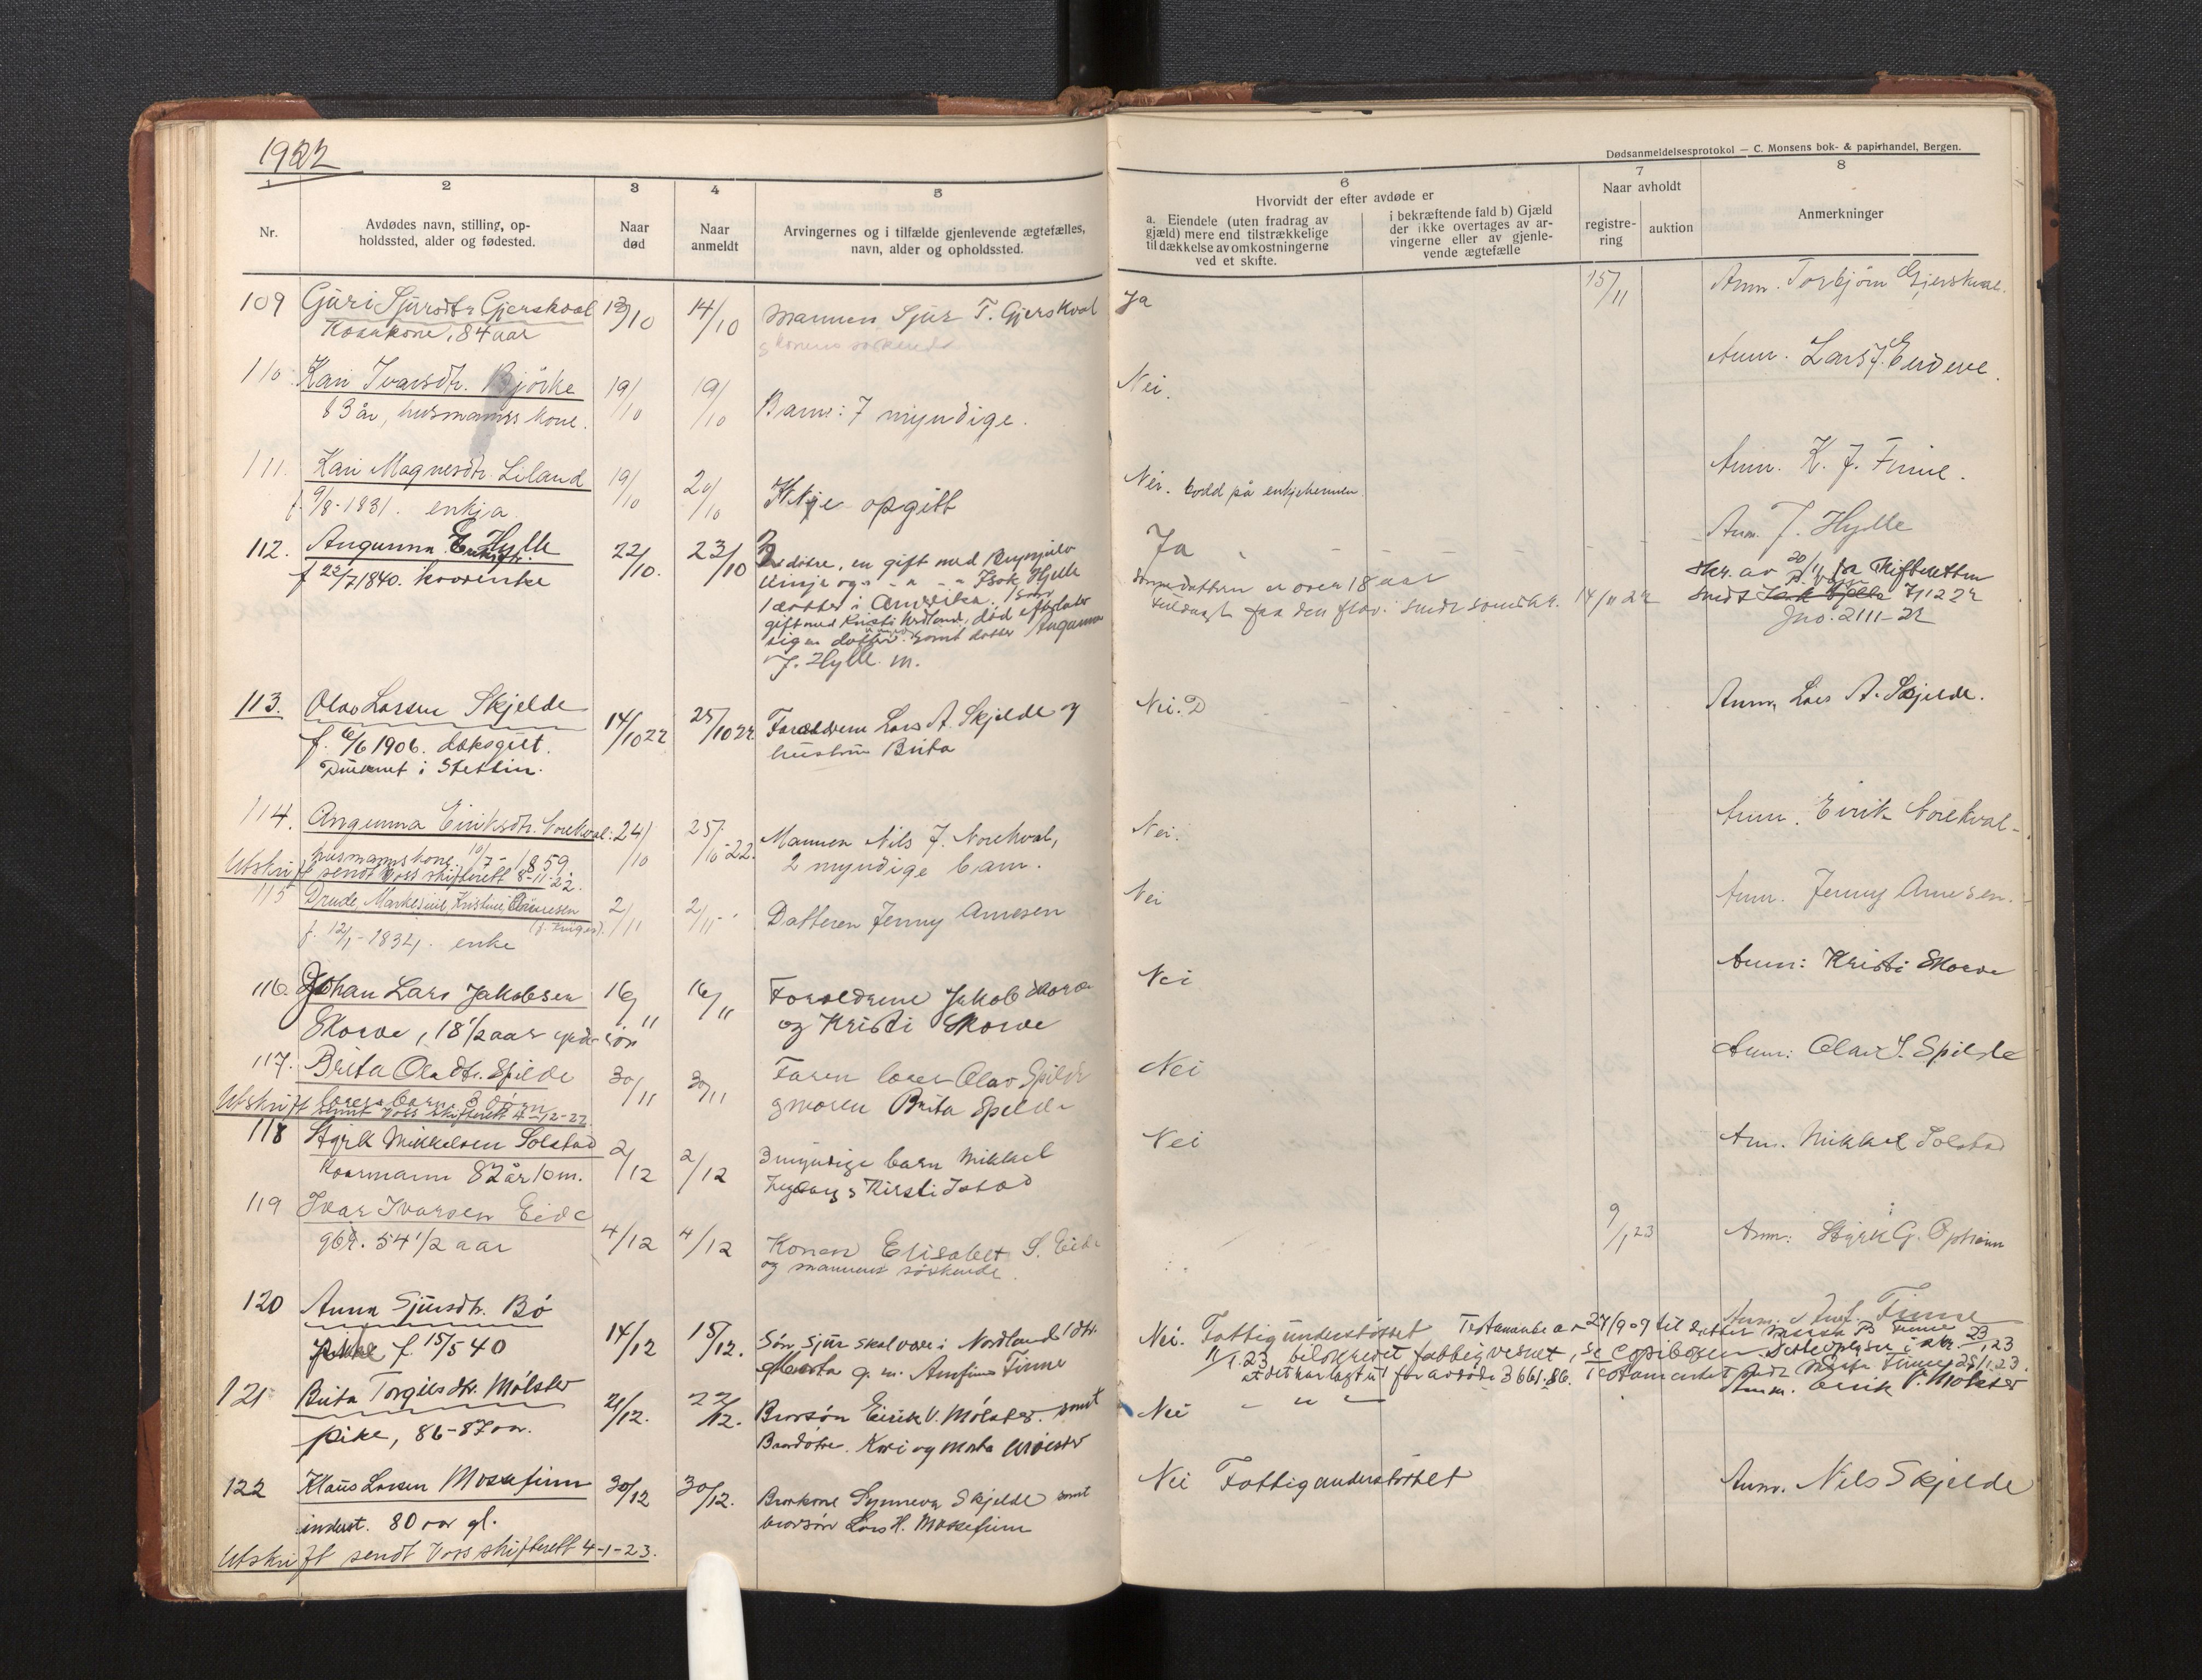 1922
Dødsanmeldelsesprotokol — C. Monsens bok- & papirhandel, Bergen.
1
2
3
4
5
6
7
8
Nr.
Avdødes navn, stilling, op-
holdssted, alder og fødested.
Naar
død
Naar
anmeldt
Arvingernes og i tilfælde gjenlevende ægtefælles,
navn, alder og opholdssted.
Hvorvidt der efter avdøde er
a. Eiendele (uten fradrag av
gjæld) mere end tilstrækkelige
til dækkelse av omkostningerne
ved et skifte.
i bekræftende fald b) Gjæld
der ikke overtages av ar-
vingerne eller av gjenle-
vende ægtefælle
Naar avholdt
registre-
ring
auktion
Anmerkninger
109 Guri Sjursdtr Gjerskval 13/10 14/10 Mannen Sjur T. Gjerskval Ja 15/11 Anm. Torbjørn Gjerskval.
Kaarkone, 84 aar
110 Kari Ivarsdtr. Bjørke 19/10 19/10 Barn: 7 myndige. Nei. Anm. Lars J. Endeve.
63 år, husmanns kone.
111. Kari Magnesdtr. Liland 19/10 20/10 Ikkje opgitt Nei. budd på enkjeheimen Anm. K. J. Finne.
f. 9/8-1831. enkja
112. Angunna Eriksdtr. Hylle 22/10. 23/10 Ja Anm. T. Hylle
f 22/7 1840. kaarenke
døtre, en gift med Brynjulv
Isak Hylle
1 datter i Amerika. 1 søn
gift med Kristi død efterlater
sig en datter samt datter Angunna
J. Hylle m.
Sønnedatteren er over 18 aar
14/11 22
20/11 fra Skifteretten
Sendt 7/12 22
Jno. 2111-22
113. Olav Larsen Skjelde 14/10 22 25/10 22 Forældrene Lars A. Skjelde og Nei. Anm. Lars A. Skjelde.
f. 6/6 1906. daksgut. hustru Brita
Druknet i Stettin.
114. Angunna Eiriksdtr. Norekval. 24/10 25/10-22. Mannen Nils J. Norekval, Nei. Anm. Eirik Norekval
husmannskone. 10/7-1859 2 myndige barn.
Utskrift sendt Voss skifterett 8-11-22.
115 Drude Markesine Kristine Arnesen 2/11 2/11 Datteren Jenny Arnesen Nei Anm. Jenny Arnesen.
f. 12/1-1832. enke
116. Johan Lars Jakobsen 16/11 16/11 Foreldrene Jakob Skorve Nei Anm: Kristi Skorve
Skorve, 18 1/2 aar søn og Kristi Skorve
117. Brita Oladtr. Spilde 30/11 30/11 Faren Olav Spilde Nei Anm: Olav S. Spilde
og moren Brita Spilde
Utskrift sendt Voss skifterett 4-12-22
118 Styrk Mikkelsen Solstad 2/12 2/12 3 myndige barn Mikkel Nei Anm. Mikkel Solstad
Kaarmann 82 år 10 m.
119 Ivar Ivarsen Eide 4/12 4/12 Konen Elisabet S. Eide 9/1 23 Anm: Styrk G. Opheim
gbr. 54 1/2 aar og mannens søskende.
120 Anna Sjursdtr. Bø 14/12 15/12. Søn, Sjur Skelvare i Nordland 1 dtr. Nei. Fattigunderstøttet Anm: Finne
f. 15/5 40 Marta g. m. Arnfinn Finne
Testamente av 27/9 09 til datter Marta B Finne
11/1.23 fattigvesenet, se copibogen
at det har lagt ut for avdøde 3661.86. Testamentet sendt Marta Finne 25/1 23.
121 Brita Torgilsdtr. Mølster 21/12. 22/12. Brorsøn Eirik V. Mølster. samt Nei — " — Anm. Eirik V. Mølster
pike, 86-87 aar. Brordøtre. Kari og Marta Mølster
122 Klaus Larsen Mossefinn 30/12 30/12. Brorkone Synneva Skjelde samt Nei Fattigunderstøttet Anm. Nils Skjelde
inderst. 80 aar gl. brorsøn Lars H. Mossefinn
Utskrift sendt Voss skifterett 4-1-23.